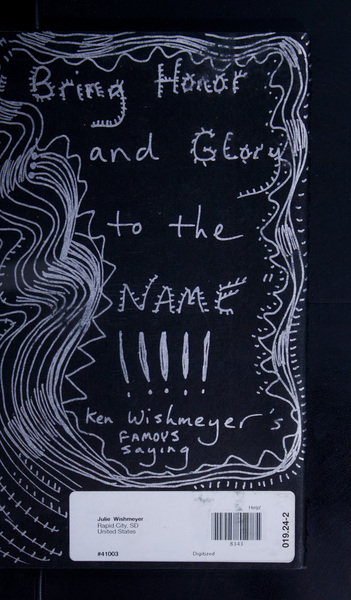 Bring Honor
and Glory
to the
NAME
!!!!!
Ken Wishmeyer's
FAMOUS
saying
Help!
Julie Wishmeyer
Rapid City, SD
United States
8141
#41003
Digitized
019.24-2